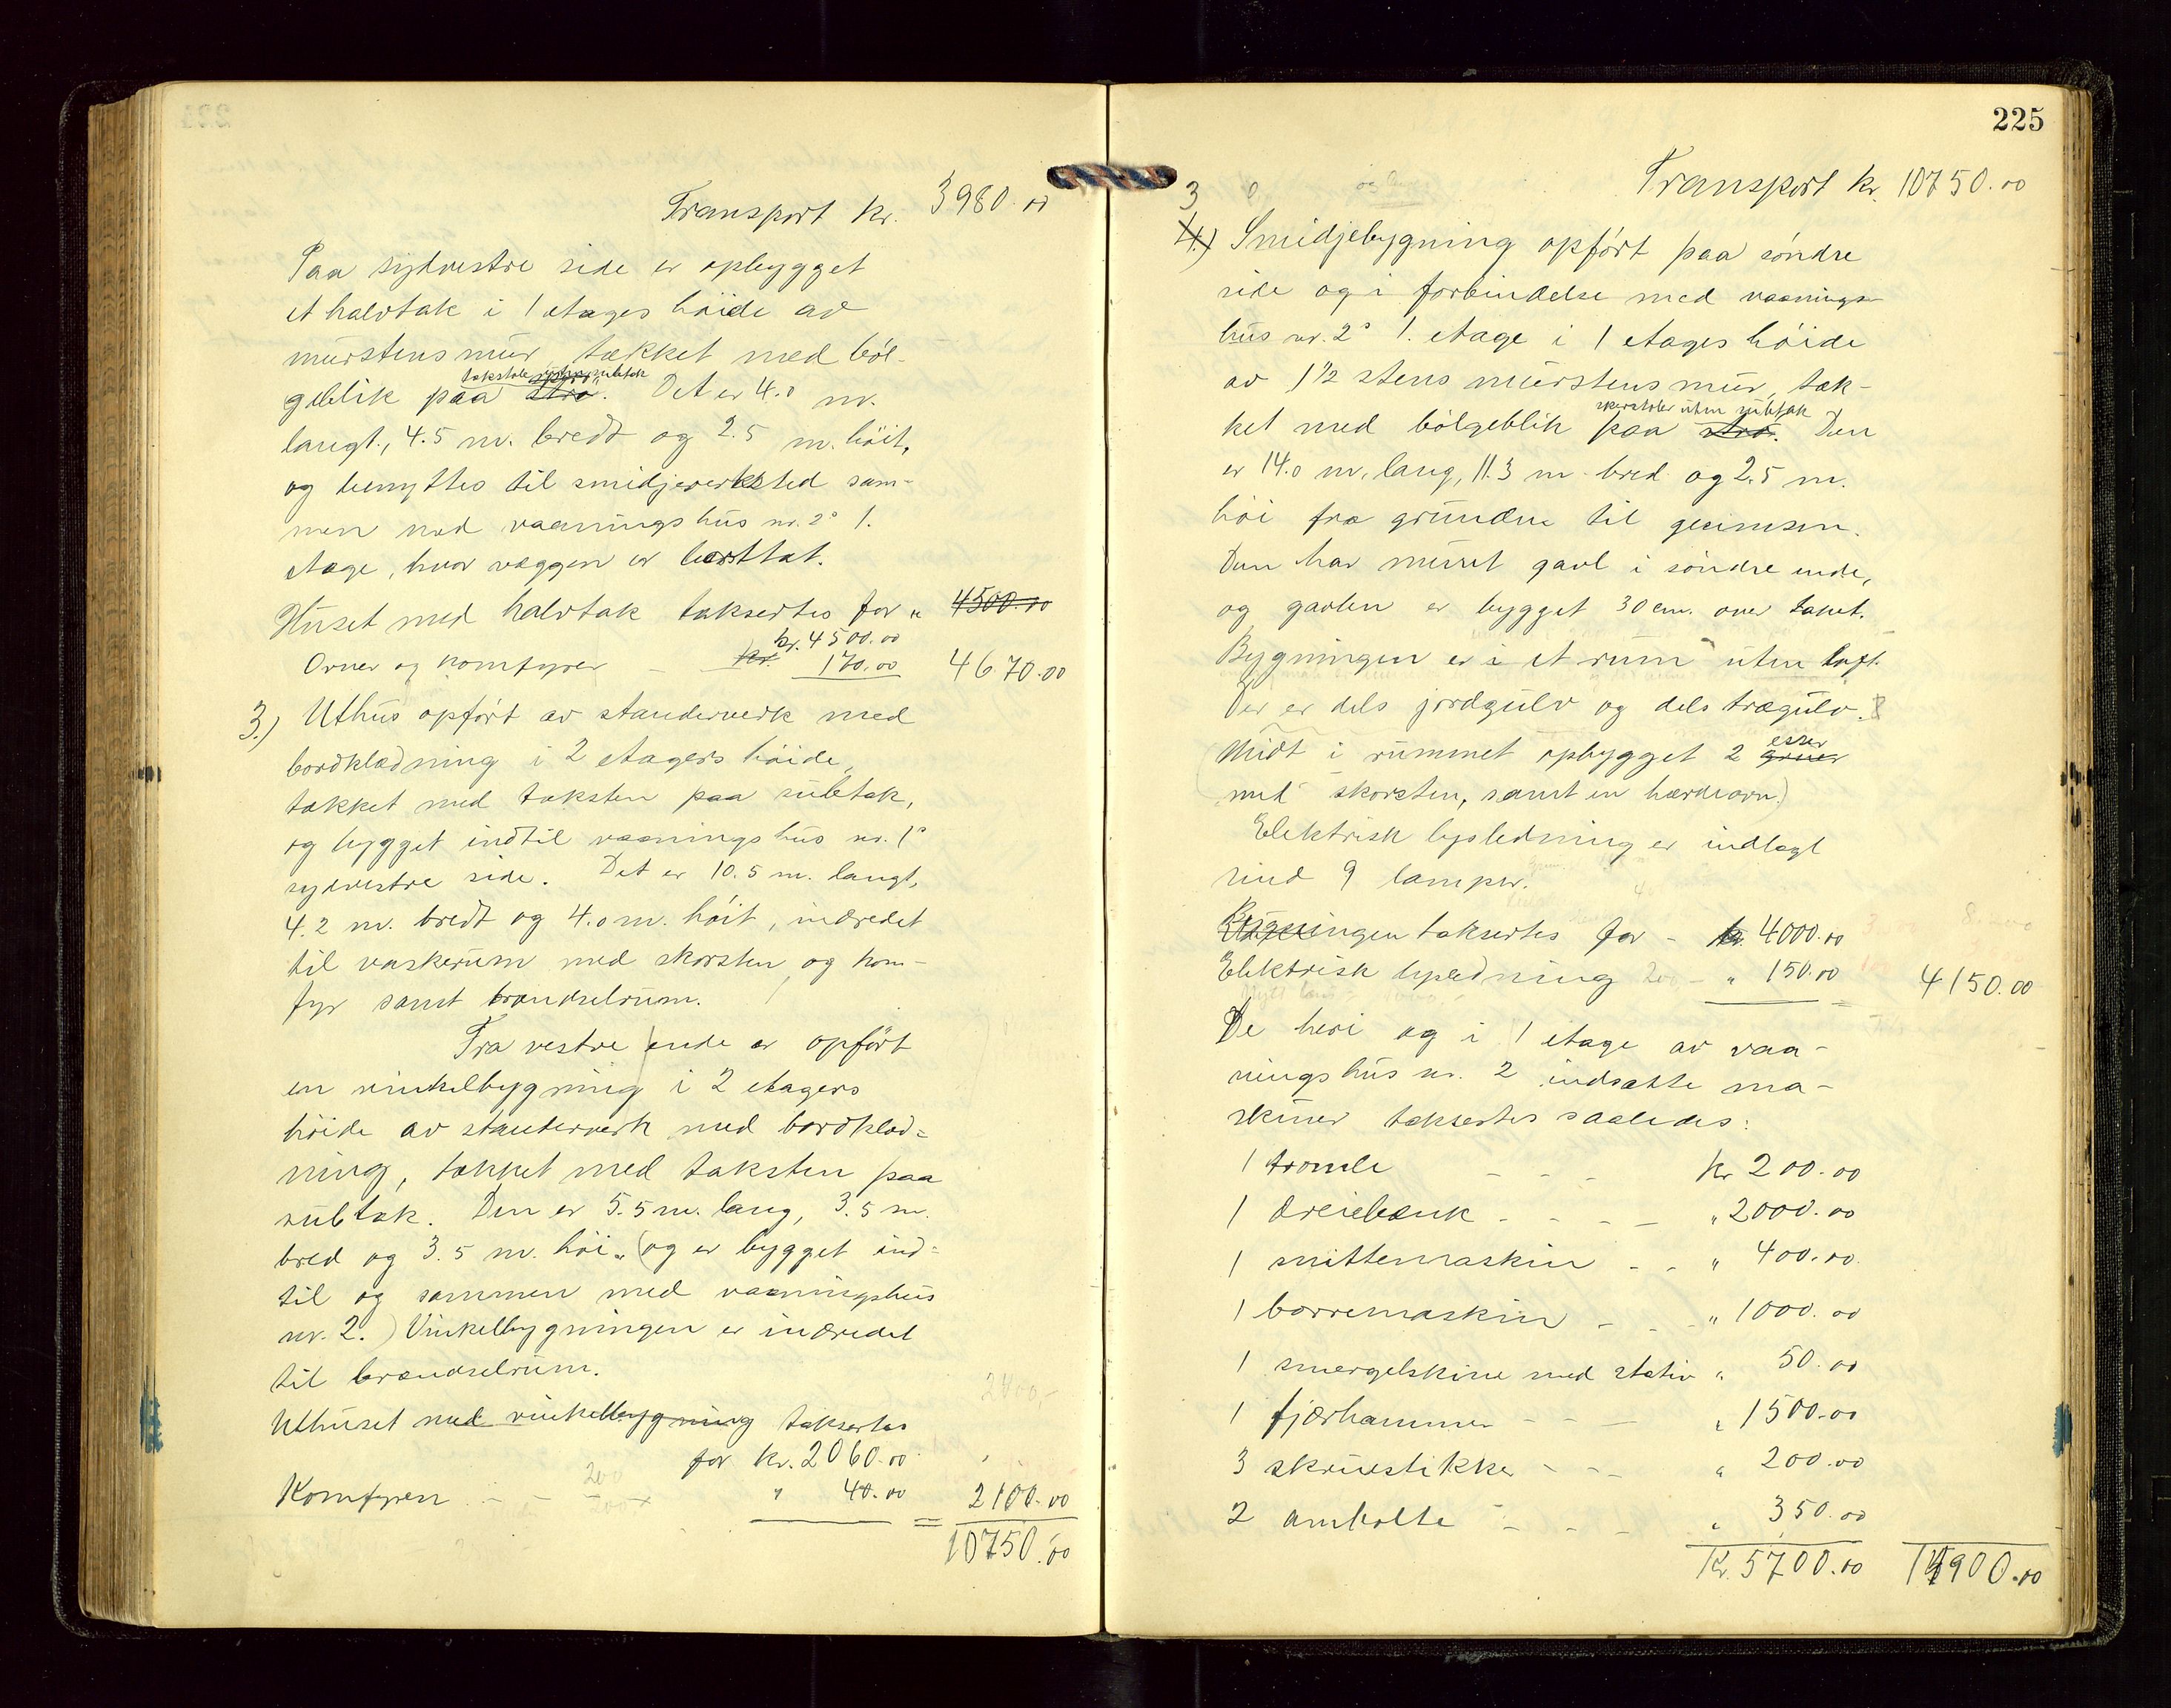 Transport kr. 3980.00
Paa sydvestre side er opbygget
et halvtak i 1 etages höide av
murstensmur, tækket med böl-
takstole uten subtak
geblik paa stro. Det er 4.0 m.
langt, 4.5 m. bredt og 2.5 m. höit,
og benyttes til smidjeverksted sam-
men med vaaningshus nr. 2s 1.
etage, hvor væggen er borttat.
Huset med halvtak taksertes for " 4500.00
kr. 4500.00
Ovner og komfyrer - kr. 170.00 4670.00
3.) Uthus opfört av standerverk med
bordklædning i 2 etagers höide,
tækket med taksten paa subtak,
og bygget indtil vaaningshus nr. 1s
sydvestre side. Det er 10.5 m. langt,
4.2 m. bredt og 4.0 m. höit, indredet
til vaskerum med skorsten og kom-
fyr samt brændselrum.
Fra vestre ende er opfört
en vinkelbygning i 2 etagers
höide av standerverk med bordklæd-
ning, tækket med taksten paa
subtak. Den er 5.5 m. lang, 3.5 m.
bred og 3.5 m. höi. (og er bygget ind-
til og sammen med vaaningshus
nr. 2.) Vinkelbygningen er indredet
til brændselrum.
2400.-
Uthuset med vinkelbygning taksertes
for kr. 2060.00
Komfyren - - 200 " 40.00 2100.00
= 10750.00
225
Transport kr. 10750.00
3
4.) Smidjebygning opfört paa söndre
side og i forbindelse med vaanings-
hus nr. 2s 1. etage i 1 etages höide
av 1 1/2 stens murstensmur, tæk-
uten subtak
ket med bölgeblik paa stro. Den
er 14.0 m. lang, 11.3 m bred og 2.5 m.
höi fra grunden til gesimsen.
Den har muret gavl i söndre ende,
og gavlen er bygget 30 cm. over taket.
Bygningen er i et rum uten loft.
Der er dels jordgulv og dels trægulv.
esser
(Midt i rummet opbygget 2 gruer
med skorsten, samt en hærdeovn.)
Elektrisk lysledning er indlagt
med 9 lamper.
Bygningen taksertes for - kr. 4000.00
Elektrisk lysledning 200 - " 150.00 4150.00
De heri og i 1 etage av vaa-
ningshus nr. 2 indsatte ma-
skiner taksertes saaledes:
1 tromle - - - kr 200.00
1 dreiebænk - - - - " 2000.00
1 snittemaskin - - " 400.00
1 borremaskin - - - " 1000.00
1 smergelskive med stativ " 50.00
1 fjærhammer - - - " 1500.00
3 skruestikker - - - " 200.00
2 ambolte - - - - " 350.00
Kr. 5700.00 14900.00